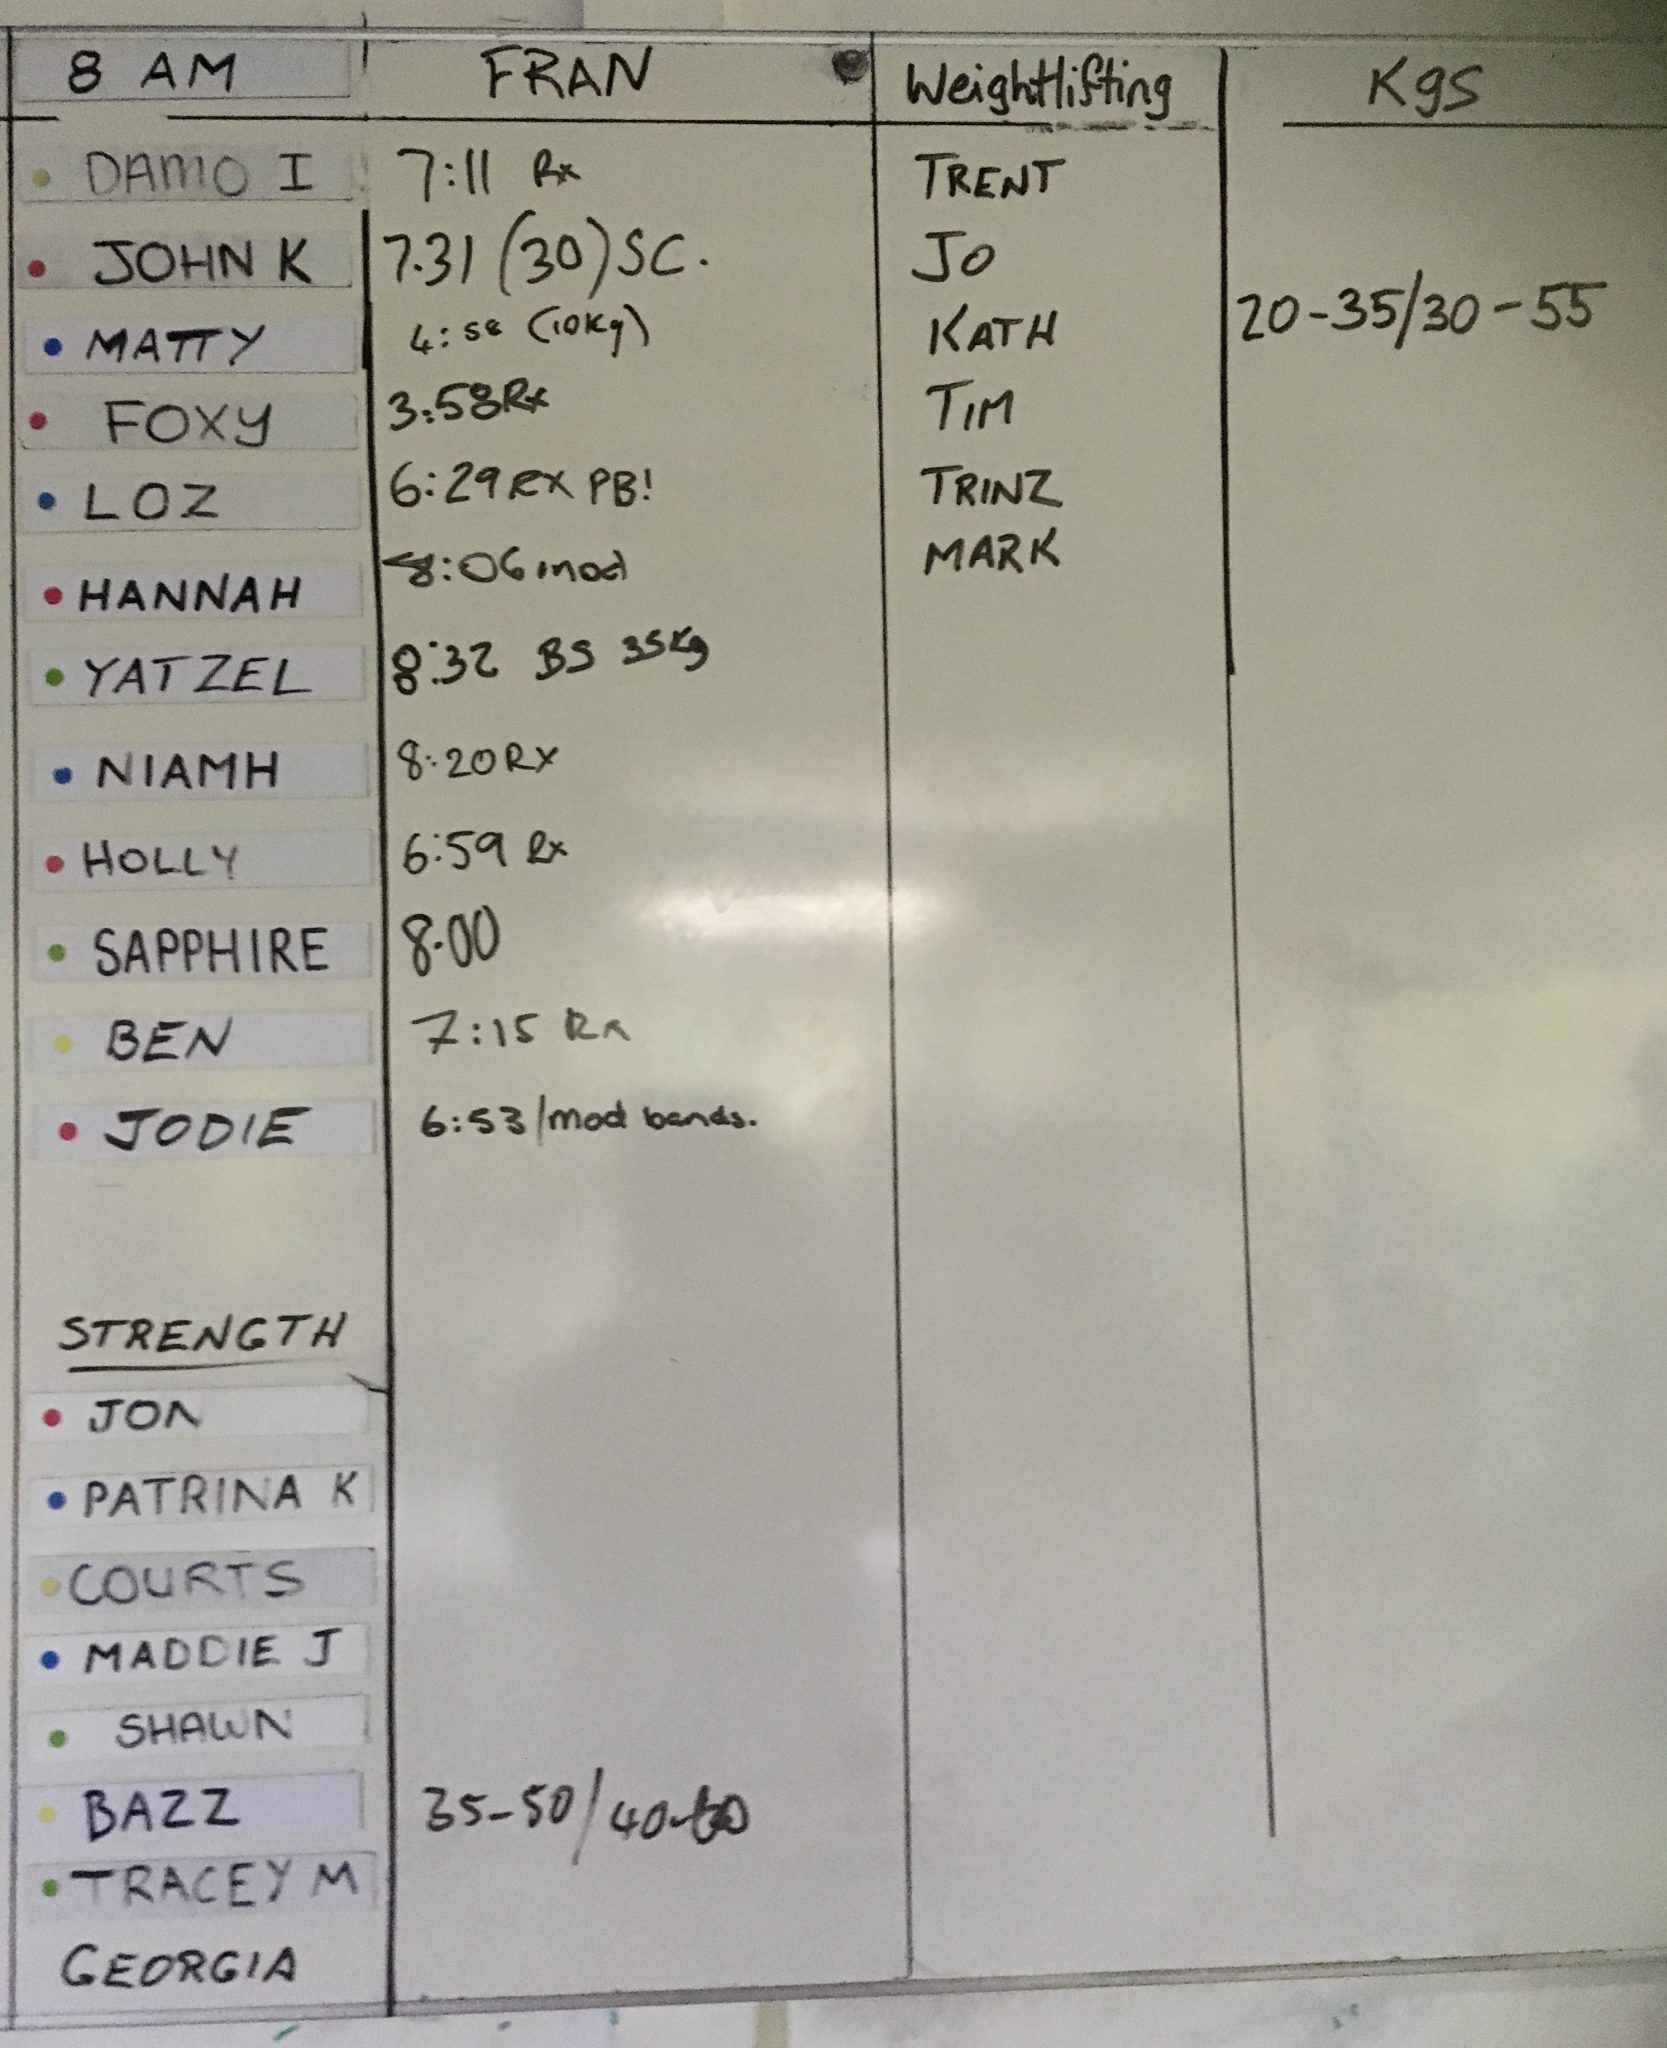 8 AM FRAN Weightlifting Kgs
DAMO I 7:11 Rx TRENT
JOHN K 7.31 (30) SC. JO
MATTY 4: (10Kg) KATH 20-35/30-55
FOXY 3:58 Rx TIM
LOZ 6:29 RX PB! TRINZ
HANNAH 8:06 mod MARK
YATZEL 8:32 BS 35Kg
NIAMH 8:20 RX
HOLLY 6:59 Rx
SAPPHIRE 8.00
BEN 7:15 Rx
JODIE 6:53/mod bands.
STRENGTH
JON
PATRINA K
COURTS
MADDIE J
SHAWN
BAZZ 35-50/40-60
TRACEY M
GEORGIA